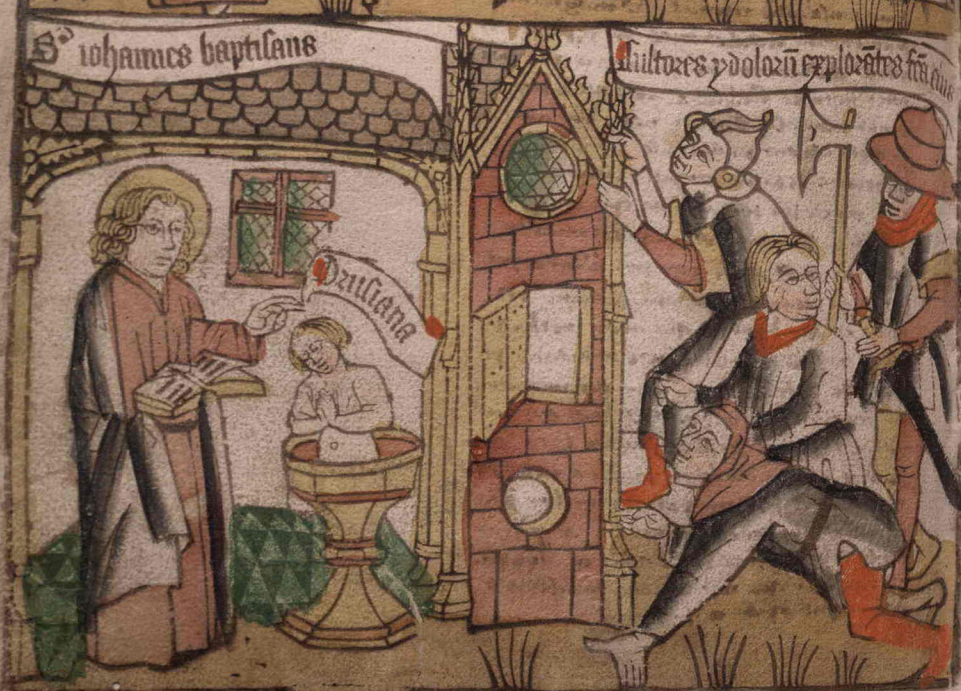 S. iohannes baptisans
Drusiana
Cultores ydoloru̅ explora̅tes fc̅a eius